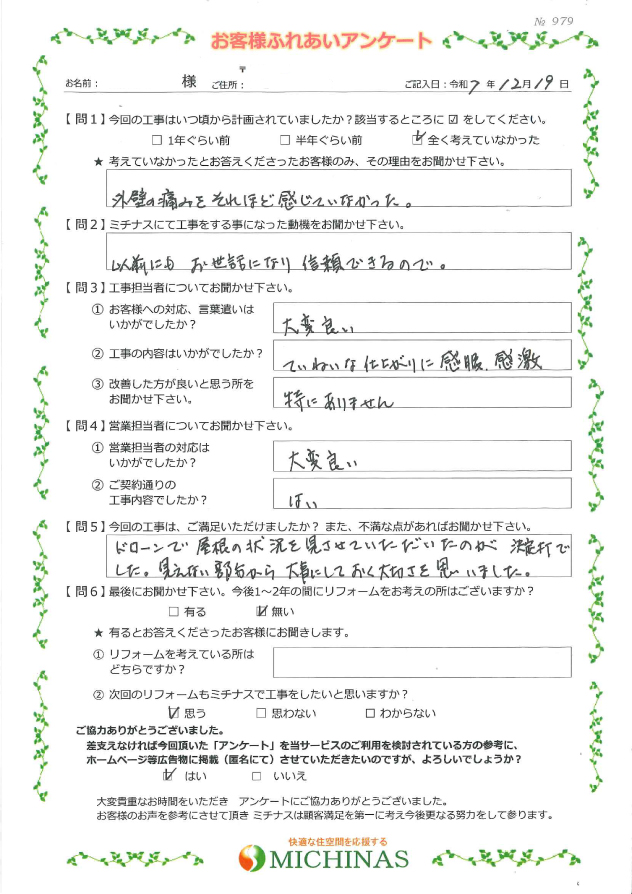 № 979
お客様ふれあいアンケート
お名前： 様 〒 ご住所： ご記入日：令和7年12月19日
【問1】今回の工事はいつ頃から計画されていましたか？該当するところに☑をしてください。
□ 1年ぐらい前 □ 半年ぐらい前 ☑ 全く考えていなかった
★ 考えていなかったとお答えくださったお客様のみ、その理由をお聞かせ下さい。
外壁の痛みをそれほど感じていなかった。
【問2】ミチナスにて工事をする事になった動機をお聞かせ下さい。
以前にもお世話になり信頼できるので。
【問3】工事担当者についてお聞かせ下さい。
① お客様への対応、言葉遣いは
いかがでしたか？
大変良い
② 工事の内容はいかがでしたか？
ていねいな仕上がりに感服、感激
③ 改善した方が良いと思う所を
お聞かせ下さい。
特にありません
【問4】営業担当者についてお聞かせ下さい。
① 営業担当者の対応は
いかがでしたか？
大変良い
② ご契約通りの
工事内容でしたか？
はい
【問5】今回の工事は、ご満足いただけましたか？ また、不満な点があればお聞かせ下さい。
ドローンで屋根の状況を見させていただいたのが決定打で
した。見えない部分から大事にしておく大切さを思いました。
【問6】最後にお聞かせ下さい。今後1～2年の間にリフォームをお考えの所はございますか？
□ 有る ☑ 無い
★ 有るとお答えくださったお客様にお聞きします。
① リフォームを考えている所は
どちらですか？
② 次回のリフォームもミチナスで工事をしたいと思いますか？
☑ 思う □ 思わない □ わからない
ご協力ありがとうございました。
差支えなければ今回頂いた「アンケート」を当サービスのご利用を検討されている方の参考に、
ホームページ等広告物に掲載（匿名にて）させていただきたいのですが、よろしいでしょうか？
☑ はい □ いいえ
大変貴重なお時間をいただき アンケートにご協力ありがとうございました。
お客様のお声を参考にさせて頂き ミチナスは顧客満足を第一に考え今後更なる努力をして参ります。
快適な住空間を応援する
MICHINAS